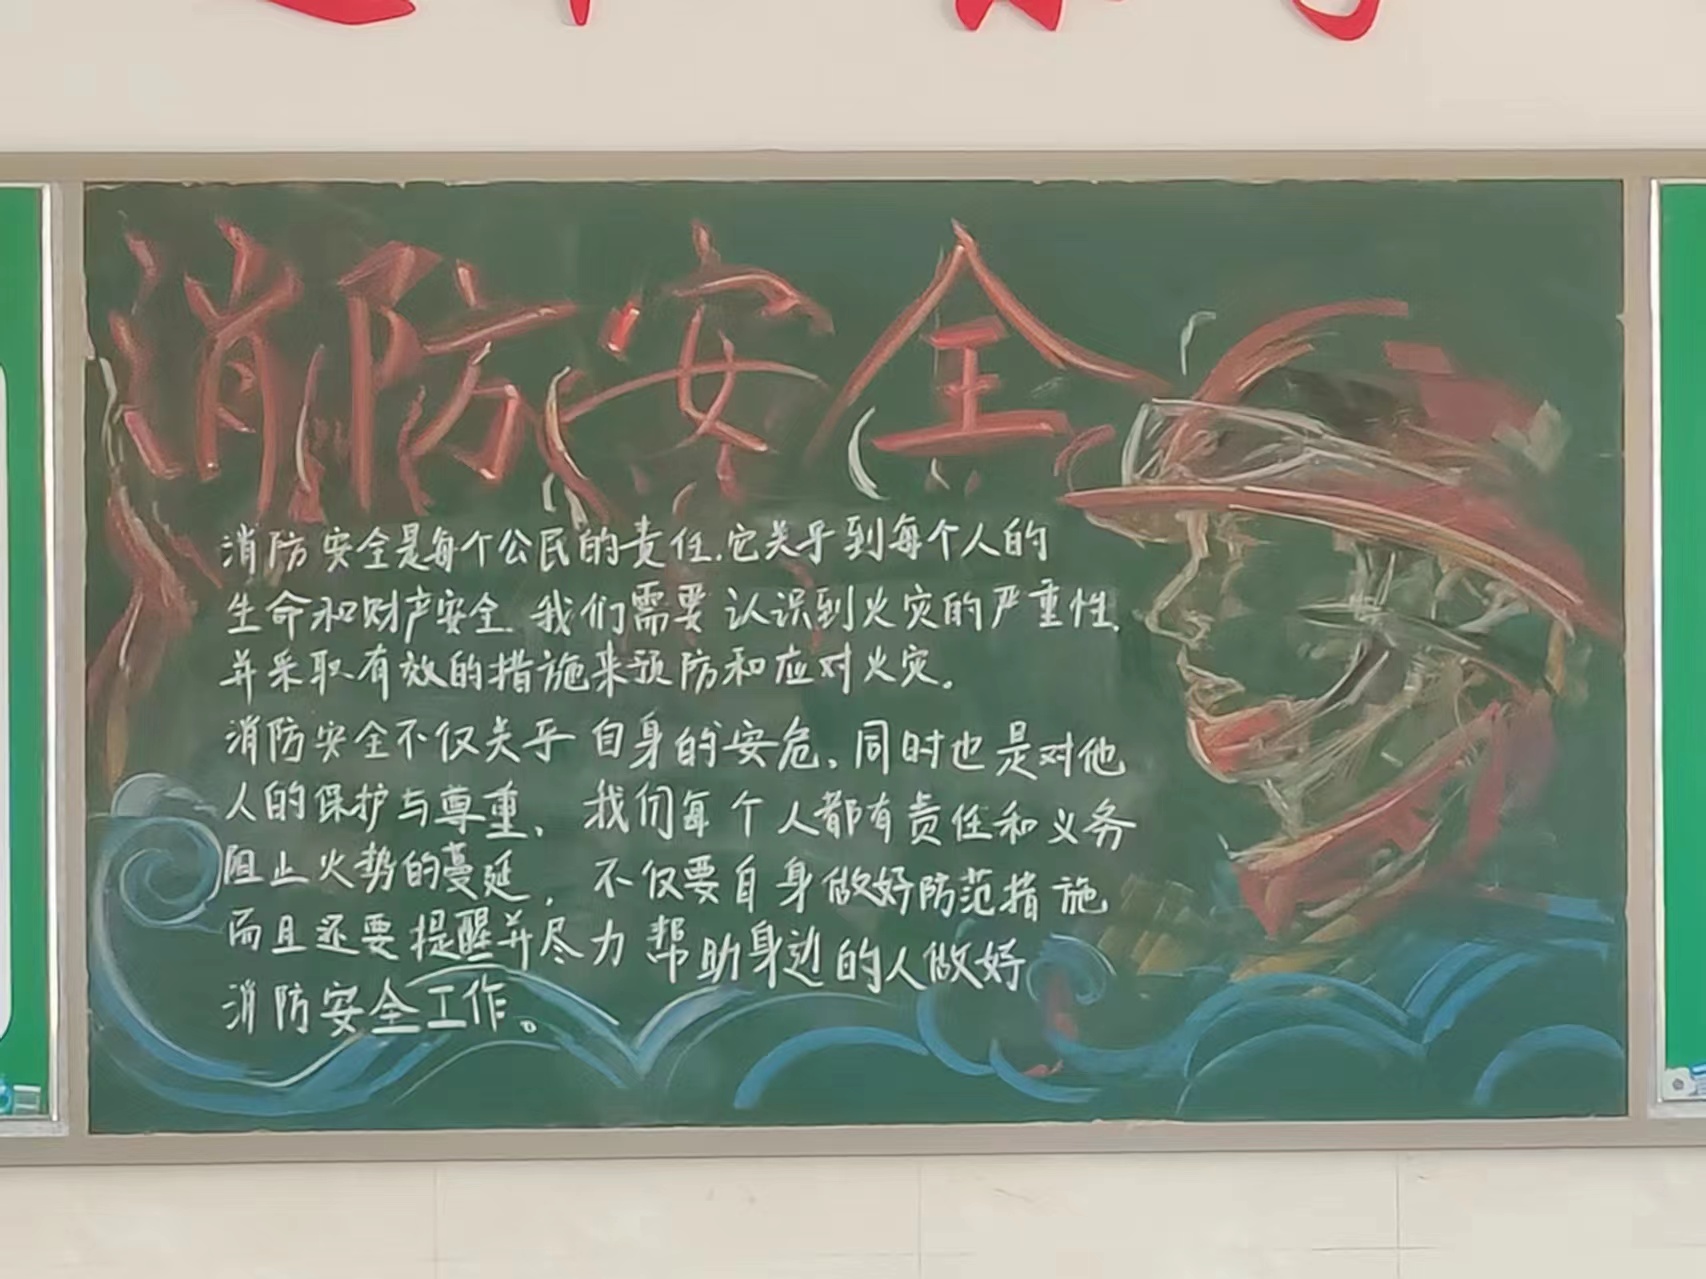 消防安全
消防安全是每个公民的责任.它关乎到每个人的
生命和财产安全.我们需要认识到火灾的严重性,
并采取有效的措施来预防和应对火灾.
消防安全不仅关乎自身的安危,同时也是对他
人的保护与尊重,我们每个人都有责任和义务
阻止火势的蔓延,不仅要自身做好防范措施
而且还要提醒并尽力帮助身边的人做好
消防安全工作。